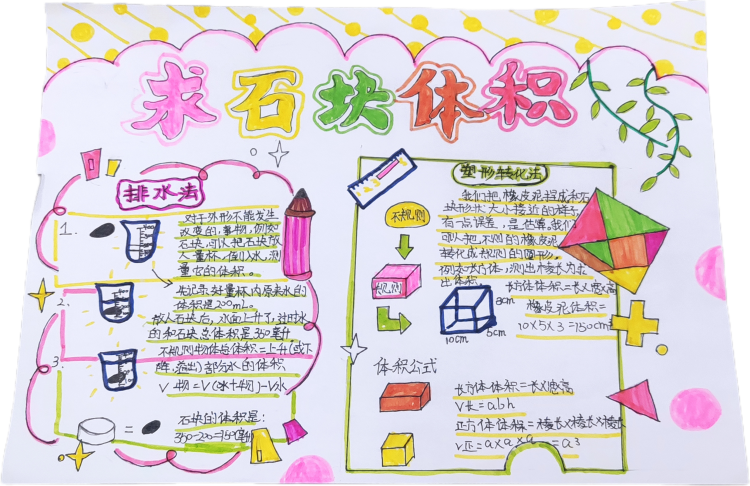 求石块体积
排水法
1.
对于外形不能发生
改变的事物,例如
石块,可以把石块放
入量杯,注入水,测
量它的体积。
2.
先记录好量杯内原来水的
体积是200mL。
放入石块后,水面上升了,这时水
的和石块总体积是350毫升
3.
不规则物体总体积=上升(或下
降,溢出)部分水的体积
V物=V(水+物)-V水
=
石块的体积是:
350-200=150毫升
塑形转化法
不规则
规则
我们把橡皮泥捏成和石
块形状大小接近的样子,
有一点误差,是估算,我们
可以把不规则的橡皮泥
转化成规则的图形,
例如长方体,测出棱长为求
出体积。
长方体体积=长X宽X高
橡皮泥体积=
10X5X3=150cm³
3cm
5cm
10cm
体积公式
长方体体积=长X宽X高
V长=abh
正方体体积=棱长X棱长X棱长
V正=axaxa=a³